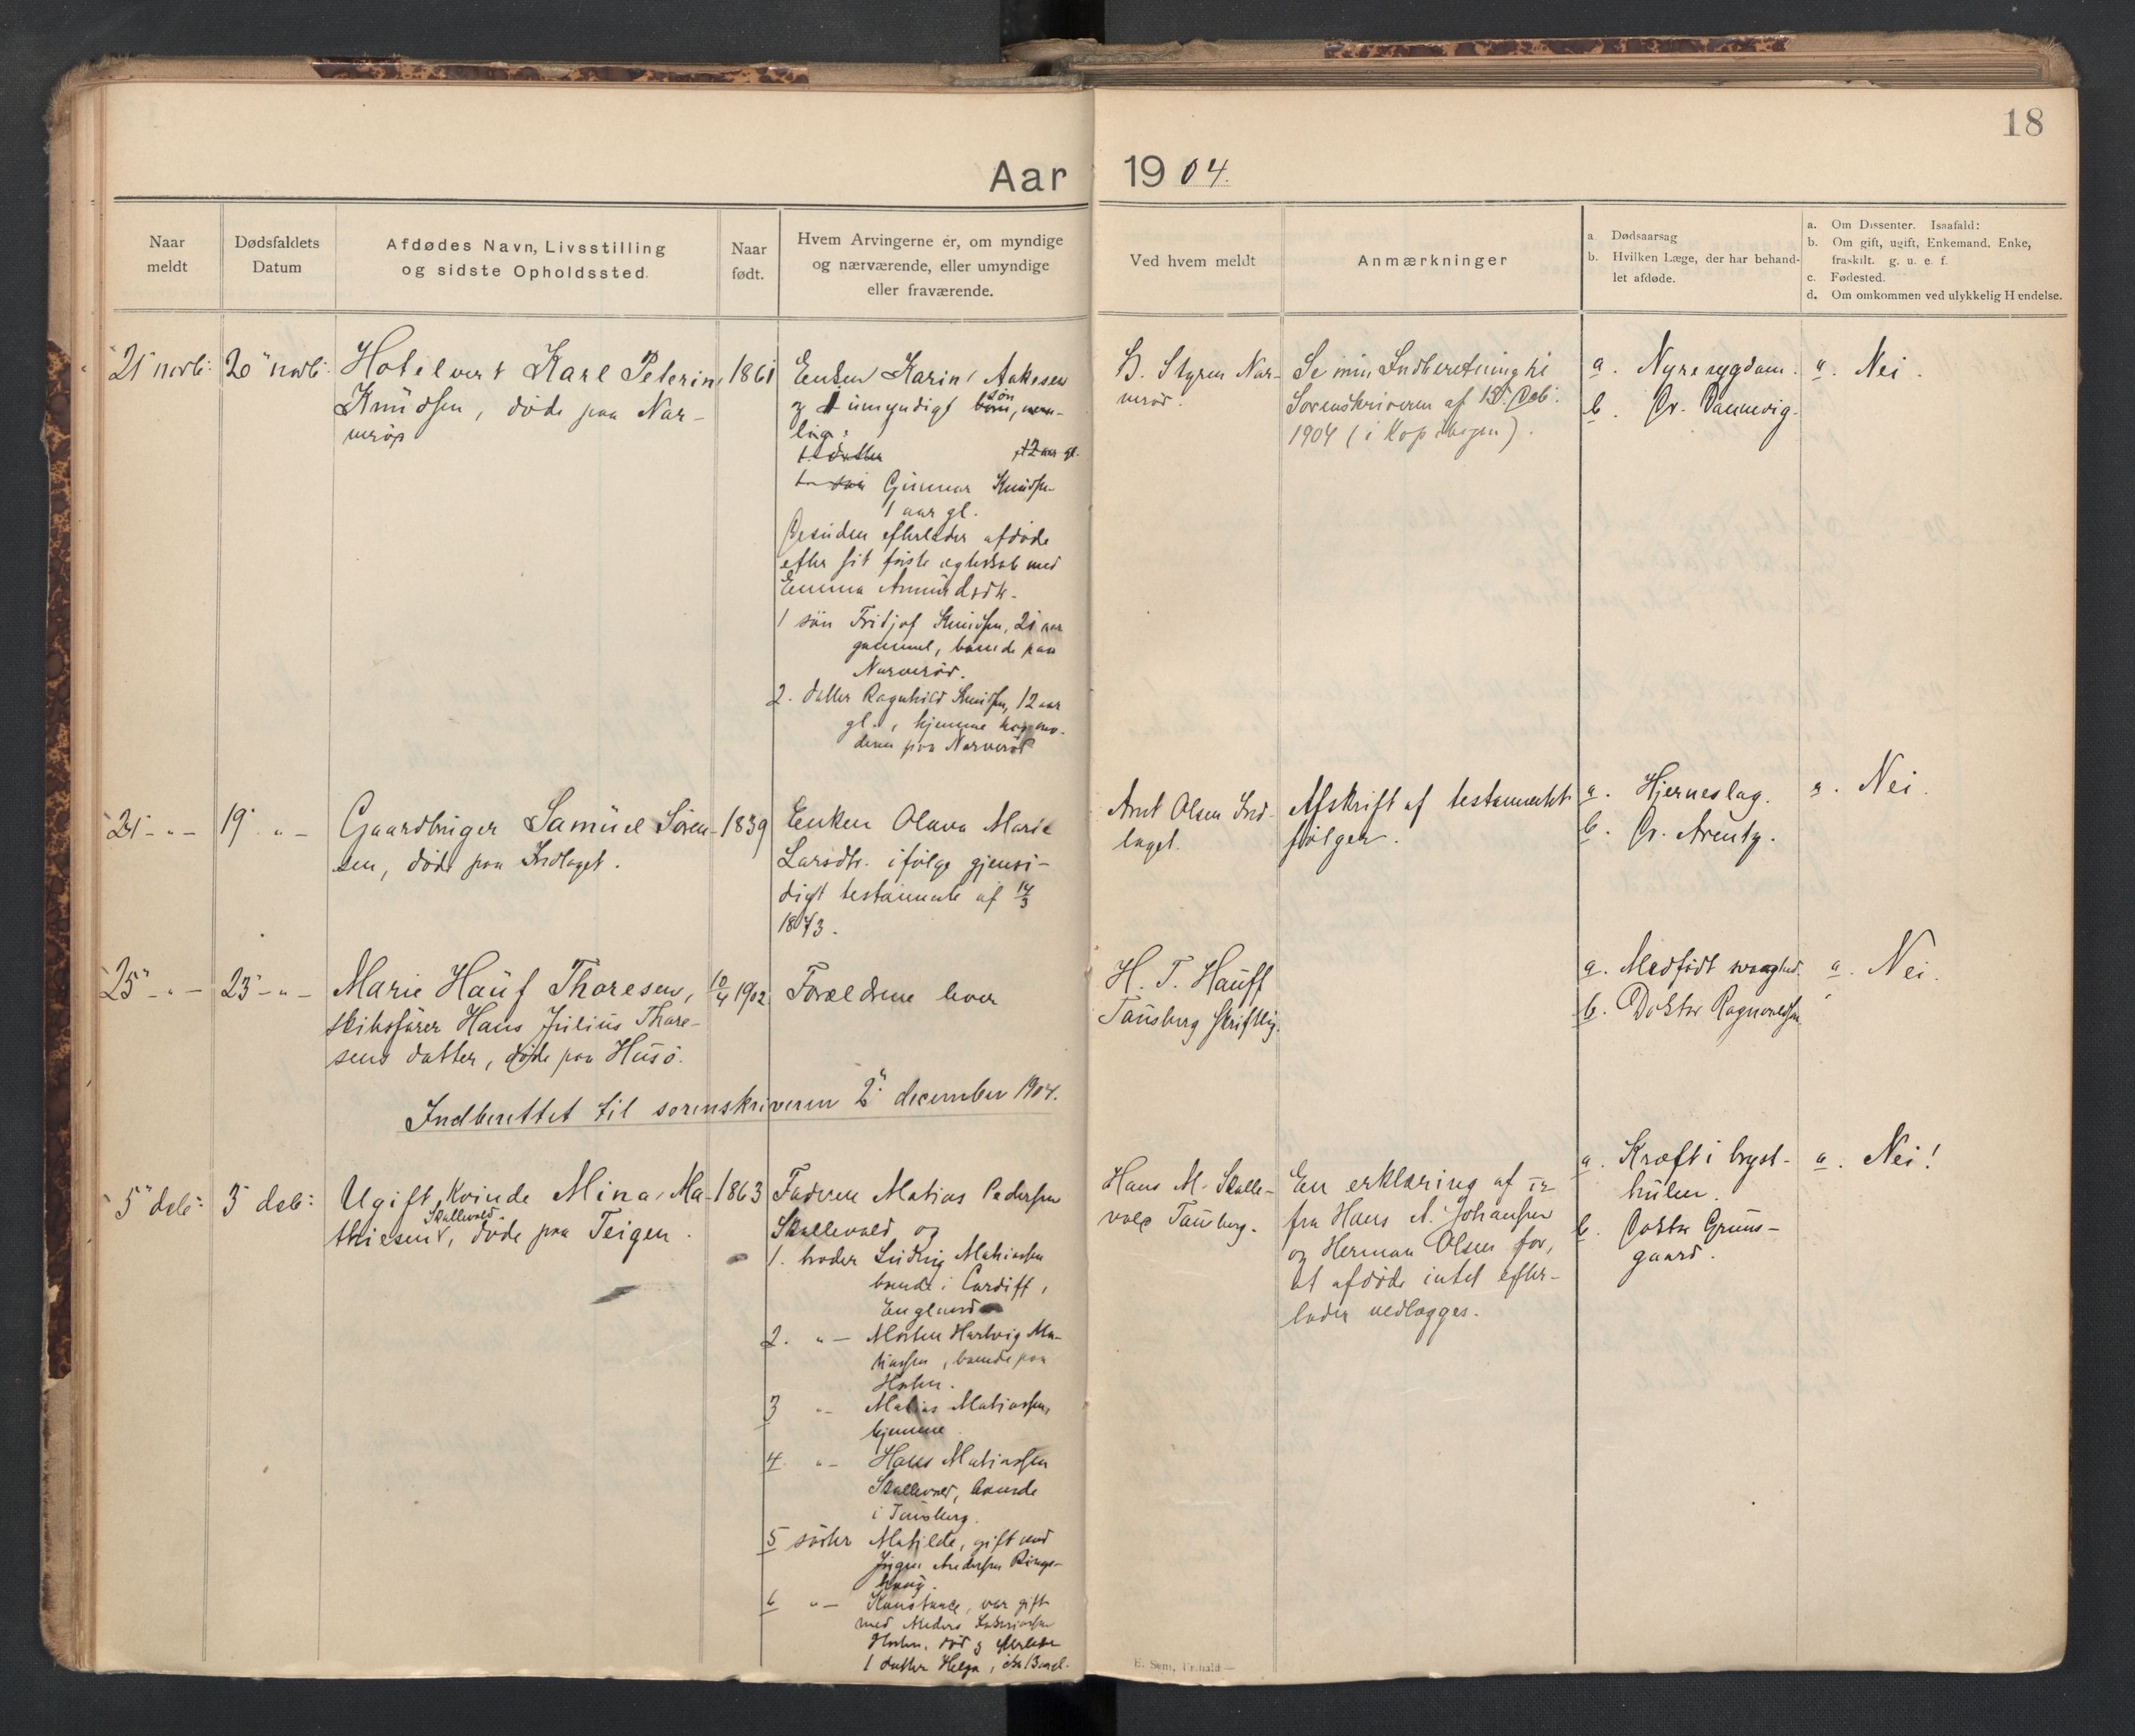 18
Aar 1904.
Naar
meldt
Dødsfaldets
Datum
Afdødes Navn, Livsstilling
og sidste Opholdssted.
Naar
født.
Hvem Arvingerne er, om myndige
og nærværende, eller umyndige
eller fraværende.
Ved hvem meldt
Anmærkninger
a. Dødsaarsag
b. Hvilken Læge, der har behand-
let afdøde.
a. Om Dissenter. Isaafald:
b. Om gift, ugift, Enkemand, Enke,
fraskilt. g. u. e. f.
c. Fødested.
d. Om omkommen ved ulykkelig Hendelse.
21" novb:
20" novb:
Hotelvert Karl Peterin
Knudsen, døde paa Nar-
verød
1861
Enken Karin Aakesen
og 1 umyndigt børn, nem-
søn
lig:
1. datter 12 aar gl.
1. søn Gunnar Knudsen
1 aar gl.
Desuden efterlader afdøde
efter sit første ægteskab med
Emma Amundsdtr.
1 søn Fridjof Knudsen, 21 aar
gammel, boende paa
Narverød.
2. datter Ragnhild Knudsen, 12 aar
gl., hjemme hos mo-
deren paa Narverød
B. Styren Nar-
verød.
Se min Indberetning til
Sorenskriveren af 15. Decb:
1904 (i Kopibogen).
a. Nyresygdom.
b. Dr. Dannevig.
a. Nei.
21 - " -
19 " -
Gaardbruger Samuel Søren-
sen, døde paa Indlaget.
1839
Enken Olava Marie
Larsdtr. ifølge gjensi-
digt testamente af 14/3
1873.
Arnt Olsen Ind-
laget.
Afskrift af testamentet
følger.
a. Hjerneslag.
b. Dr. Arentz.
a. Nei.
25" - " -
23 - " -
Marie Hauf Thoresen,
skibsfører Hans Julius Thore-
sens datter, døde paa Husø.
10/4 1902
Forældrene lever
H. T. Hauff
Tønsberg skriftlig.
a. Medfødt svaghed.
b. Doktor Ragnvaldsen
a. Nei.
Indberettet til sorenskriveren 2" december 1904.
5" decb:
3 decb:
Ugift Kvinde Mina Ma-
Skallevold
thiesen, døde paa Teigen.
1863
Faderen Matias Pedersen
Skallevold og
1. broder Ludvig Mathiassen
boende i Cardiff,
England
2. " - Morten Hartvig Ma-
thiassen, boende paa
Holen.
3 " - Matias Mathiassen,
hjemme
4. " - Hans Mathiassen
Skallevold, boende
i Tønsberg.
5 søster Matilde, gift med
Jørgen Andersen Rings-
haug.
6 " - Konstance, var gift
med Anders
død og efterlader
1 datter Helga,
Hans M. Skalle-
vold Tønsberg.
En erklæring af
fra Hans A. Johansen
og Herman Olsen for,
at afdøde intet efter-
lader vedlægges.
a. Kræft i bryst-
hulen.
b. Doktor Grøns-
gaard.
a. Nei!